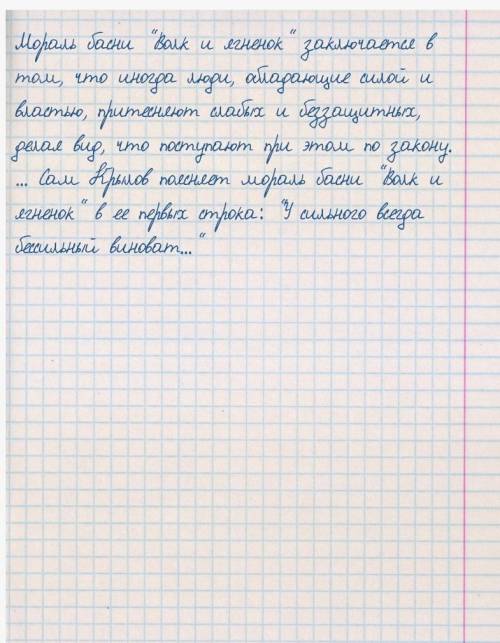 Мораль басни "Волк и ягненок" заключается в
том, что иногда люди, обладающие силой и
властью, притесняют слабых и беззащитных,
делая вид, что поступают при этом по закону.
... Сам Крылов поясняет мораль басни "Волк и
ягненок" в ее первых строка: "У сильного всегда
бессильный виноват..."